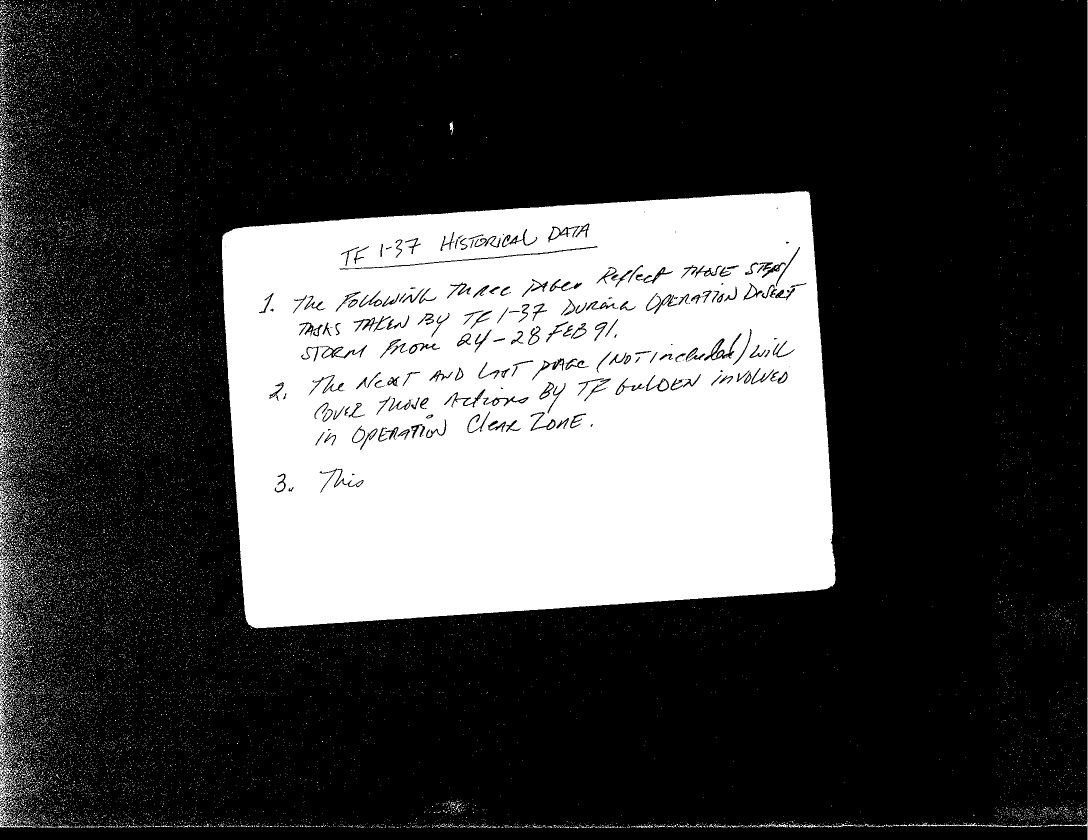 TF 1-37 HISTORICAL DATA
1. The Following Three pages Reflect those steps/
TASKS TAKEN BY TF 1-37 DURING OPERATION DESERT
STORM From 24-28 FEB 91.
2. The Next AND LAST PAGE (NOT included) will
COVER those Actions BY TF involved
in OPERATION Clear ZONE.
3. This